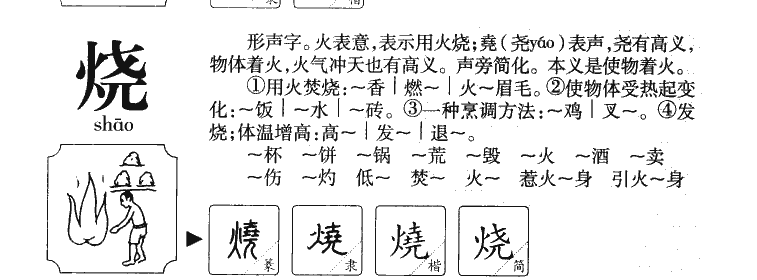 隶 楷
烧
shāo
形声字。火表意,表示用火烧;堯(尧yáo)表声,尧有高义,
物体着火,火气冲天也有高义。声旁简化。本义是使物着火。
①用火焚烧:～香｜燃～｜火～眉毛。②使物体受热起变
化:～饭｜～水｜～砖。③一种烹调方法:～鸡｜叉～。④发
烧;体温增高:高～｜发～｜退～。
～杯 ～饼 ～锅 ～荒 ～毁 ～火 ～酒 ～卖
～伤 ～灼 低～ 焚～ 火～ 惹火～身 引火～身
燒 篆 燒 隶 燒 楷 烧 简